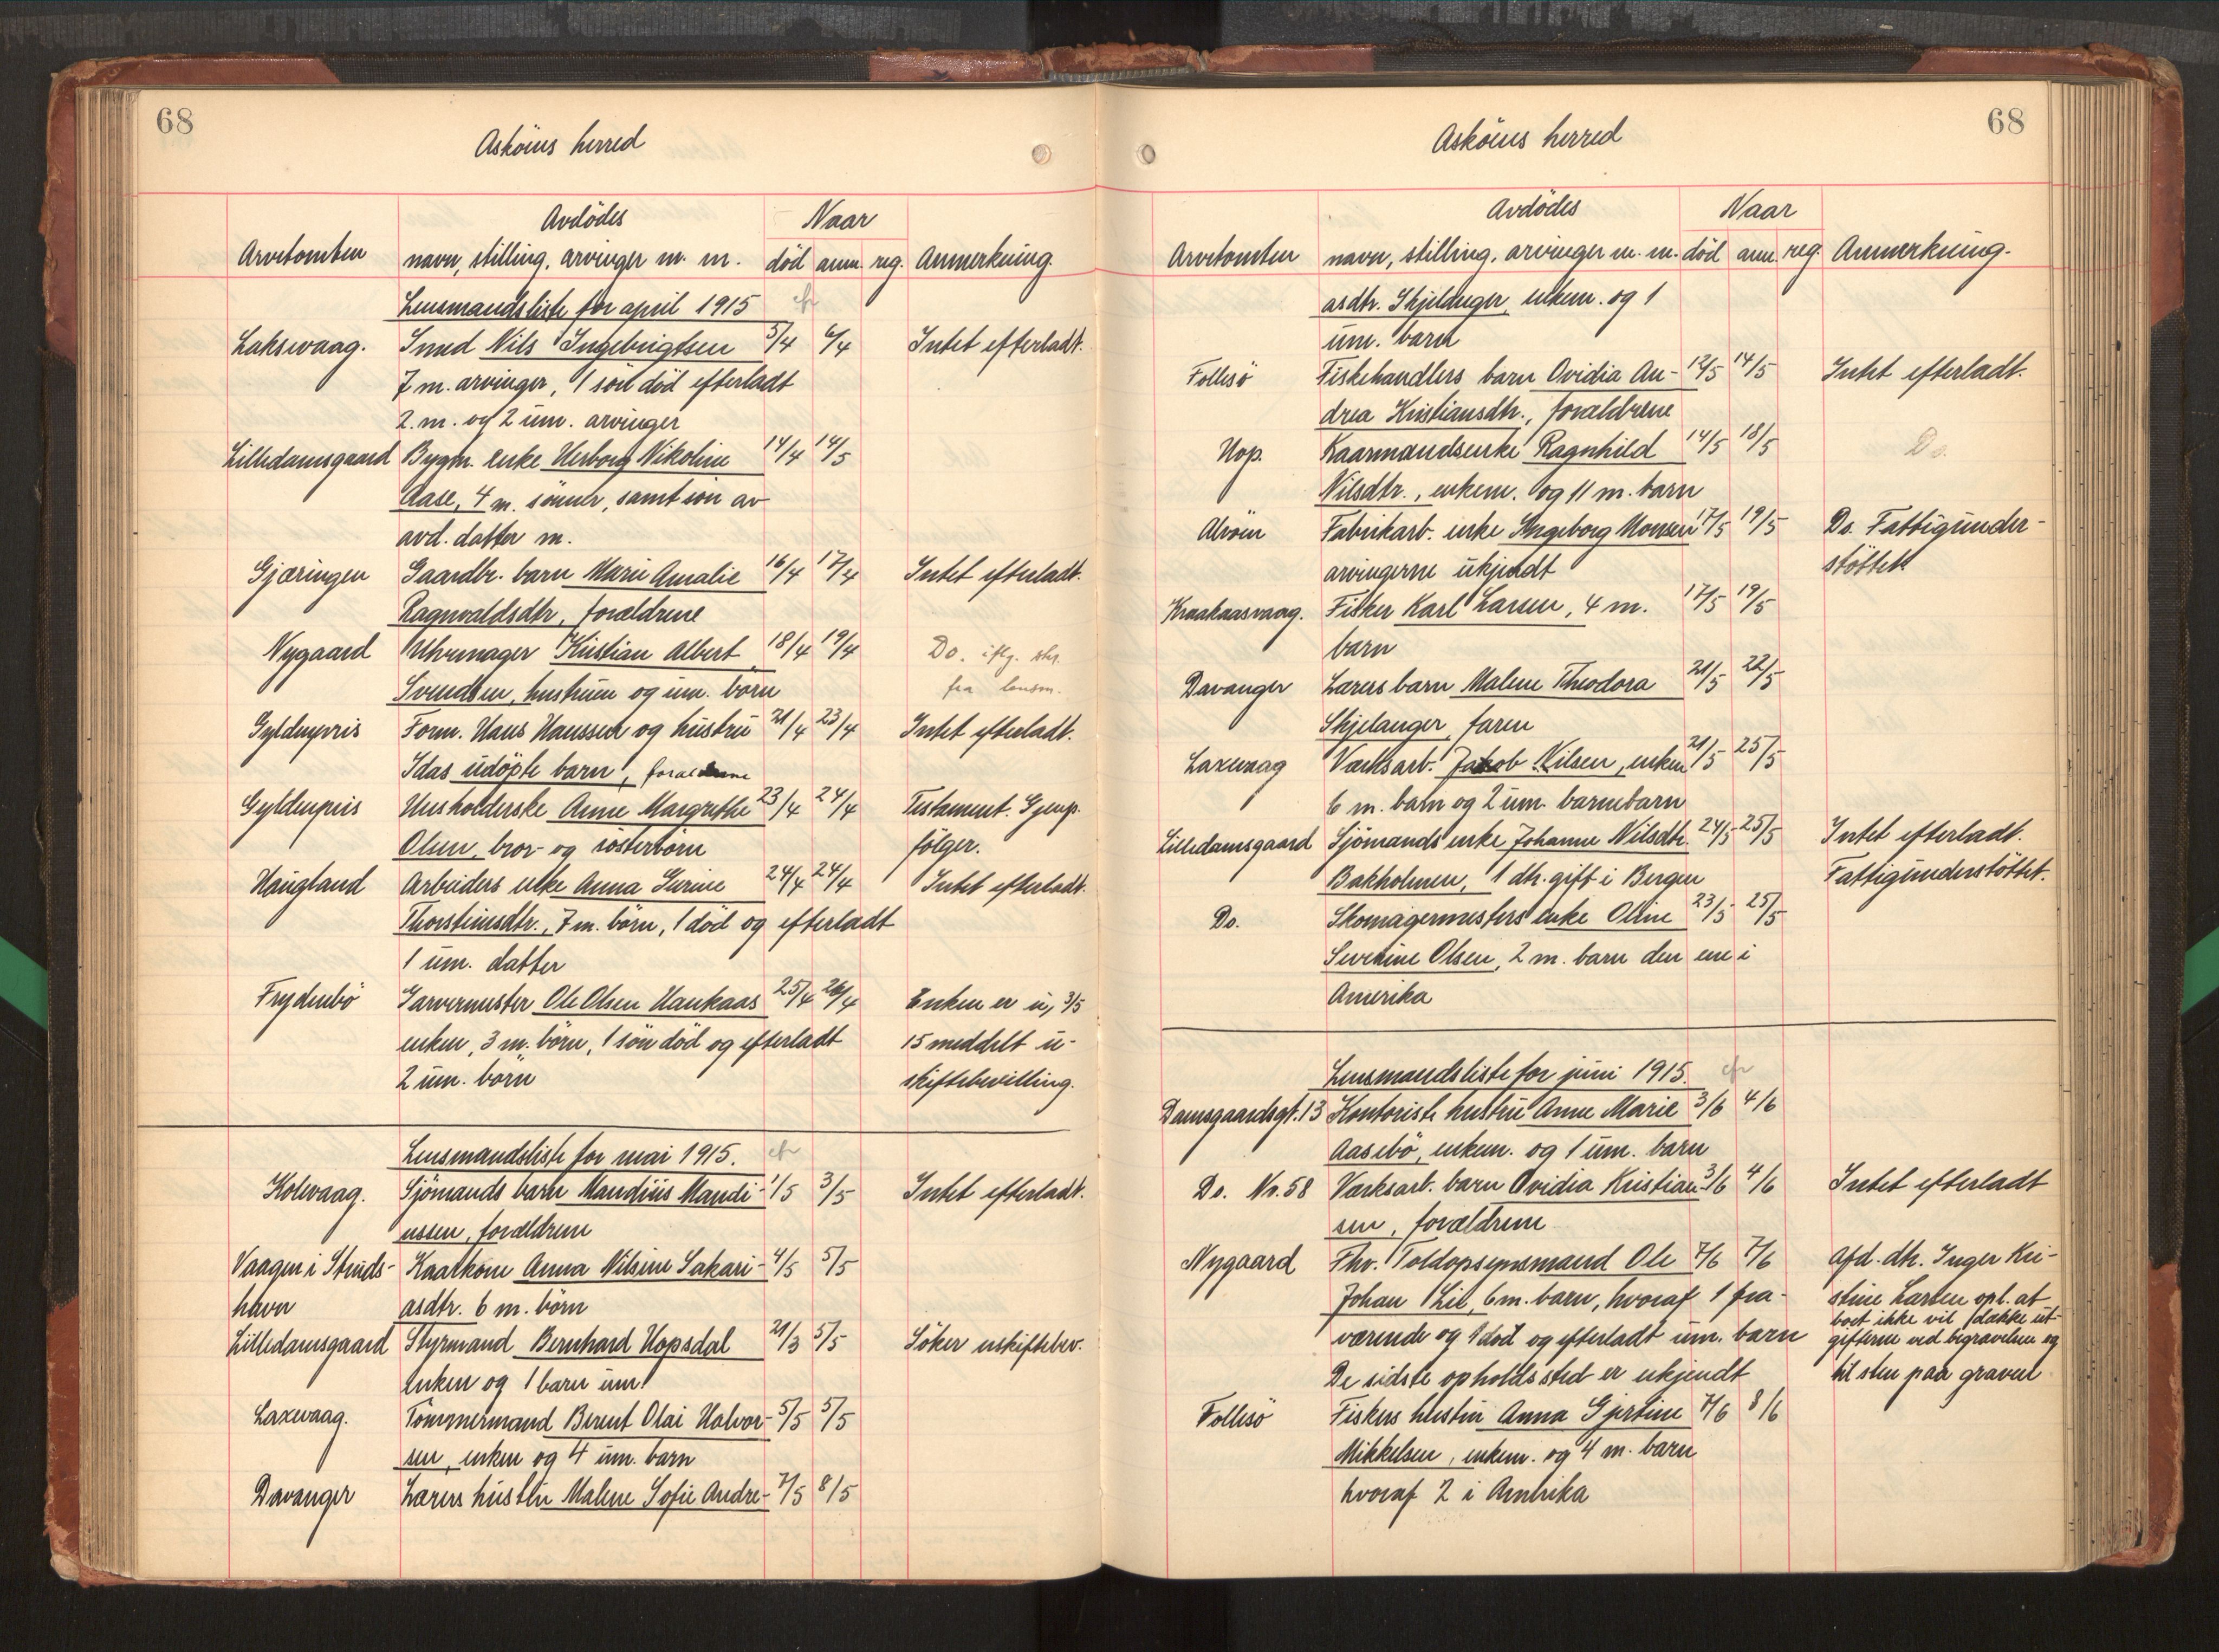 68
Askøins herred
Avdødes Naar
Arvetomten navn, stilling, arvinger m. m. død anm. reg. Anmerkning.
Lensmandsliste for april 1915
Laksevaag. Smed Nils Ingebrigtsen 5/4 6/4 Intet efterladt.
7 m. arvinger, 1 søn død efterladt
2. m. og 2 um. arvinger
Lilledamsgaard Bygm. enke Herborg Nikoline 14/4 14/5
Aase, 4 m. sønner, samt søn av
avd. datter m.
Gjæringen Gaardbr. barn Marie Amalie 16/4 17/4 Intet efterladt.
Ragnvaldsdtr, forældrene
Nygaard Uhrmager Kristian Albert 18/4 19/4 Do. iflg. skr.
Svendsen, hustrum og um. børn fra lensm.
Gyldenpris Form. Hans Hanssen og hustru 21/4 23/4 Intet efterladt.
Idas udøpte barn, forældrene
Gyldenpris Husholderske Anne Margrethe 23/4 24/4 Testament. Gjenp.
Olsen, bror- og søsterbørn følger.
Haugland Arbeiders enke Anna Gurine 24/4 24/4 Intet efterladt.
Thorsteinsdtr., 7 m. børn, 1 død og efterladt
1 um. datter
Frydenbø Garvermester Ole Olsen Haukaas 25/4 26/4 Enken er u, 3/5
enken, 3 m. børn, 1 søn død og efterladt 15 meddelt u-
2 um. børn skiftebevilling.
Lensmandsliste for mai 1915.
Kolevaag. Sjømands barn Mandius Mandi- 1/5 3/5 Intet efterladt.
ussen, forældrene
Vaagen i Struds- Kaarkone Anna Nilsine Sakari- 4/5 5/5
havn asdtr. 6 m. børn
Lilledamsgaard Styrmand Bernhard Hopsdal 21/3 5/5 Søker uskiftebev.
enken og 1 barn um.
Laxevaag. Tømmermand Berent Olai Halvor- 5/5 5/5
sen, enken og 4 um. barn
Davanger Lærers hustru Malene Sofie Andre- 7/5 8/5
68
Askøins herred
Avdødes Naar
Arvetomten navn, stilling, arvinger m. m. død anm. reg. Anmerkning.
asdtr. Skjelanger, enkem. og 1
um. barn
Follesø Fiskehandlers barn Ovidia An- 12/5 14/5 Intet efterladt.
drea Kristiansdtr., forældrene
Hop. Kaarmandsenke Ragnhild 14/5 18/5 Do.
Nilsdtr., enkem. og 11 m. barn
Alvøen Fabrikarb. enke Ingeborg Monsen 17/5 19/5 Do. Fattigunder-
arvingerne ukjendt støttet.
Kraakaasvaag. Fisker Karl Larsen, 4 m. 17/5 19/5
barn
Davanger Lærers barn Malene Theodora 21/5 22/5
Skjelanger, faren
Laxevaag Værksarb. Jakob Nilsen, enken 21/5 25/5
6 m. barn og 2 um. barnebarn
Lilledamsgaard Sjømands enke Johanne Nilsdtr. 24/5 25/5 Intet efterladt.
Bakholmen, 1 dtr. gift i Bergen Fattigunderstøttet.
Do. Skomagermesters enke Oline 23/5 25/5
Severine Olsen, 2 m. barn den ene i
Amerika
Lensmandsliste for juni 1915.
Damsgaardsgt. 13 Kontorists hustru Anne Marie 3/6 4/6
Aasebø, enkem. og 1 um. barn
Do. No. 58 Værksarb. barn Ovidia Kristian- 3/6 4/6 Intet efterladt
sen, forældrene
Nygaard Fhv. Toldopsynsmand Ole 7/6 7/6 Afd. dtr. Inger Kri-
Johan Lie, 6 m. barn, hvoraf 1 fra- stine Larsen opl. at
boet ikke vil dække ut-
værende og 1 død og efterladt um. barn gifterne ved begravelsen og
De sidste opholdssted er ukjendt til sten paa graven
Follesø Fiskers hustru Anna Gjertine 7/6 8/6
Mikkelsen, enkem. og 4 m. barn
hvoraf 2 i Amerika